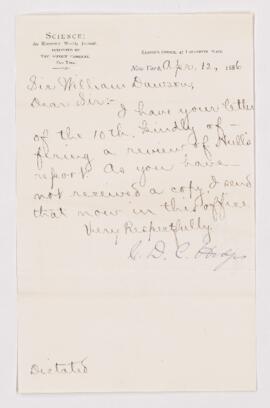 SCIENCE:
An Illustrated Weekly Journal.
PUBLISHED BY
THE SCIENCE COMPANY,
New York.
EDITOR'S OFFICE, 47 LAFAYETTE PLACE
New York, Apr. 12, 1886
Sir William Dawson,
Dear Sir:- I have your letter
of the 10th. Kindly of-
fering a review of Hull's
report. As you have
not received a copy I send
that now in this office.
Very Respectfully
C. D. C. Hodges
Dictated